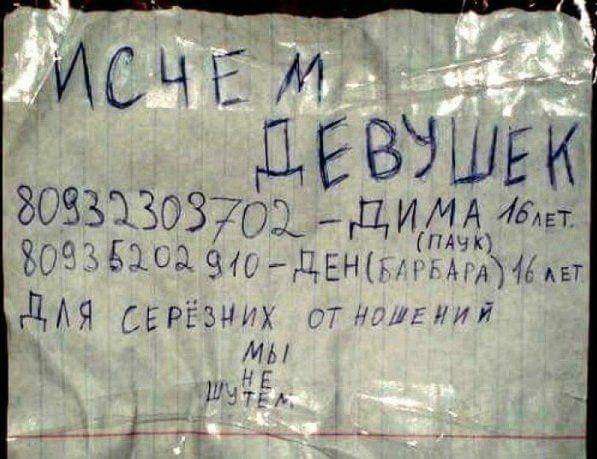 ИСЧЕМ
ДЕВУШЕК
80932309702 – ДИМА 16 ЛЕТ.
(ПАУК)
80935202910 – ДЕН (БАРБАРА) 16 ЛЕТ
ДЛЯ СЕРЁЗНИХ ОТНОШЕНИЙ
МЫ
НЕ
ШУТЕМ.